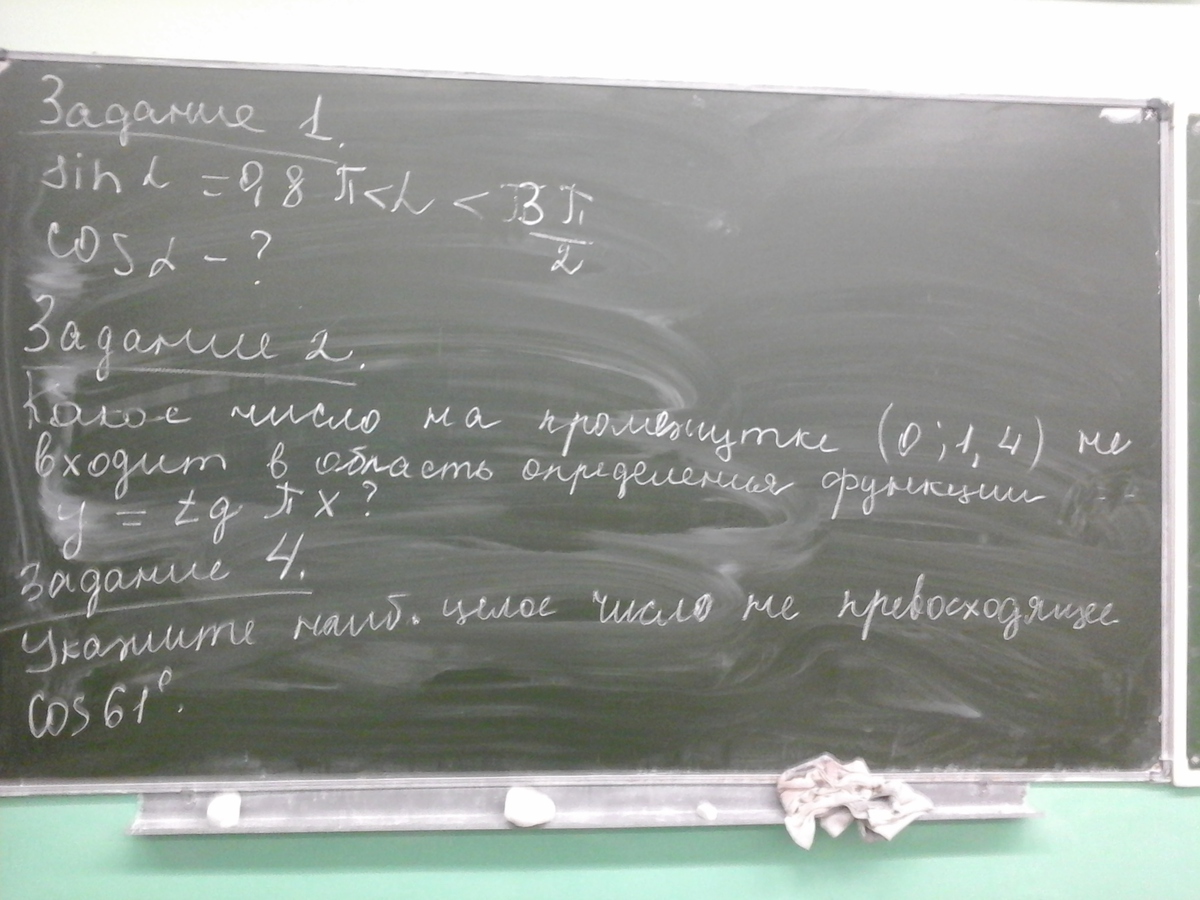 Задание 1.
sin α = 0,8 π < α < 3π/2
cos α - ?
Задание 2.
Какое число на промежутке (0; 1,4) не
входит в область определения функции
y = tg πx?
Задание 4.
Укажите наиб. целое число не превосходящее
cos 61°.